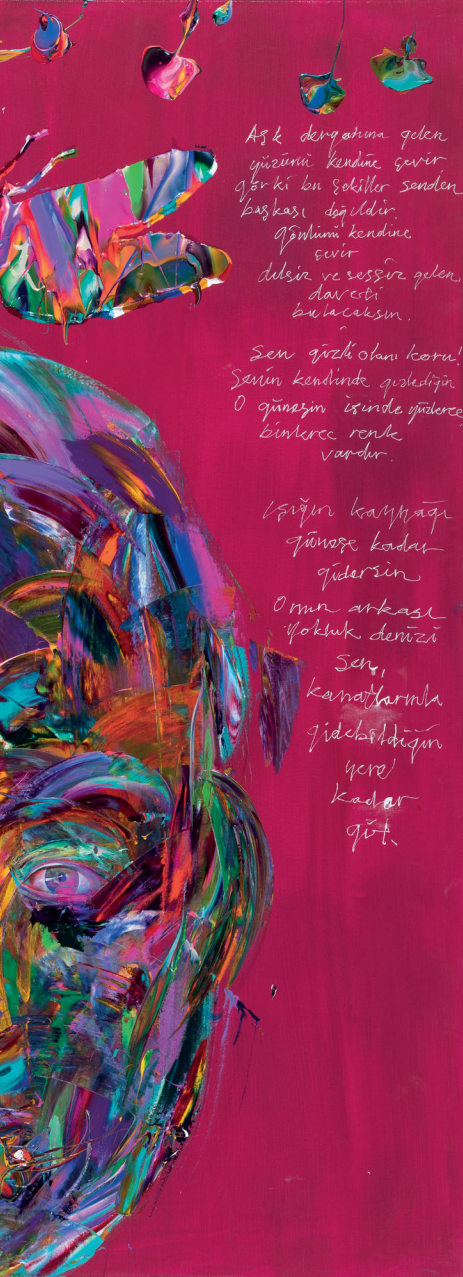 Aşk dergahına gelen
yüzünü kendine çevir
gör ki bu şekiller senden
başkası değildir.
gönlünü kendine
çevir
dilsiz ve sessiz gelen
daveti
bulacaksın.
Sen gizli olanı koru!
Senin kendinde gizlediğin
O güneşin içinde yüzlerce
binlerce renk
vardır.
ışığın kaynağı
güneşe kadar
gidersin
Onun arkası
yokluk denizi
Sen,
kanatlarınla
gidebildiğin
yere
kadar
git.